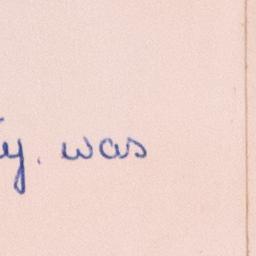 y. was